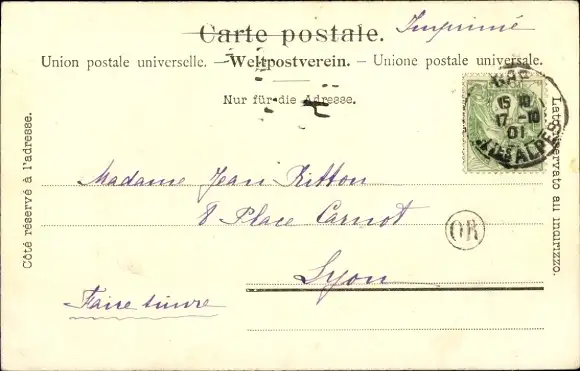 Carte postale. Imprimé
Union postale universelle. — Weltpostverein. — Unione postale universale.
Nur für die Adresse.
Côté réservé à l'adresse.
Lato riservato all indirizzo.
GAP
15 10
17 -10
01
HTES ALPES
Madame Jean Ritton
8 Place Carnot
OR
Lyon
Faire suivre